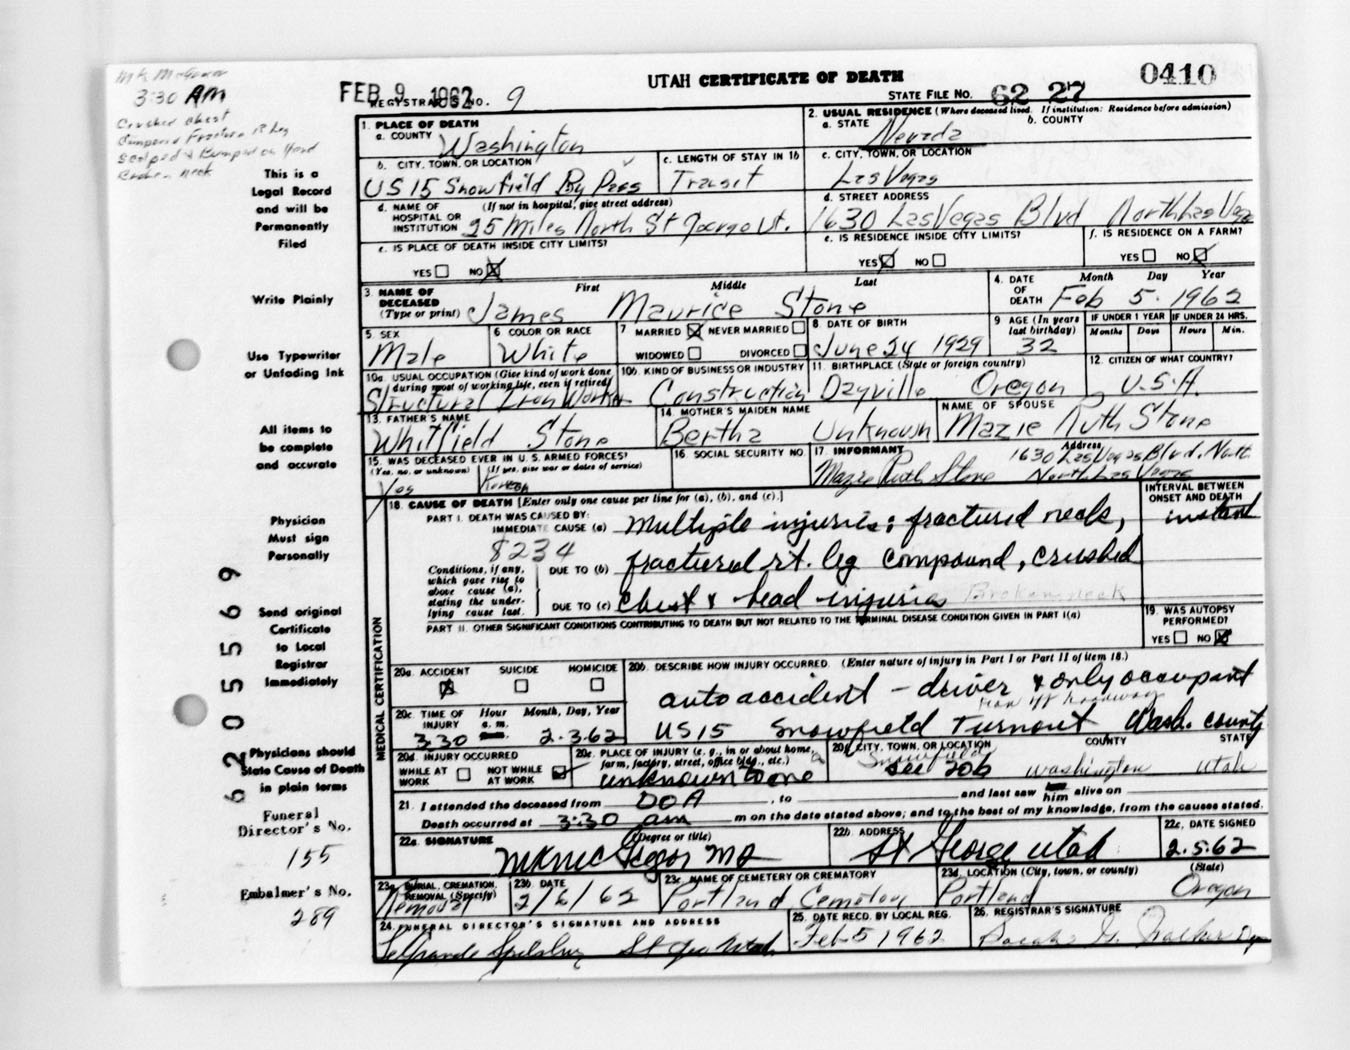 3:30 AM
Crushed chest
FEB 9 1962
UTAH CERTIFICATE OF DEATH
0410
REGISTRAR'S NO. 9
STATE FILE NO. 62 27
This is a
Legal Record
and will be
Permanently
Filed
Write Plainly
Use Typewriter
or Unfading Ink
All items to
be complete
and accurate
Physician
Must sign
Personally
Send original
Certificate
to Local
Registrar
Immediately
Physicians should
State Cause of Death
in plain terms
Funeral
Director's No.
155
Embalmer's No.
289
6205569
1. PLACE OF DEATH
a. COUNTY Washington
2. USUAL RESIDENCE (Where deceased lived. If institution: Residence before admission)
a. STATE Nevada b. COUNTY
b. CITY, TOWN, OR LOCATION US 15 Snowfield By Pass
c. LENGTH OF STAY IN 1b Transit
c. CITY, TOWN, OR LOCATION Las Vegas
d. NAME OF HOSPITAL OR INSTITUTION (If not in hospital, give street address) 25 Miles North St George Ut.
d. STREET ADDRESS 1630 Las Vegas Blvd North Las Vegas
e. IS PLACE OF DEATH INSIDE CITY LIMITS? YES NO X
e. IS RESIDENCE INSIDE CITY LIMITS? YES X NO
f. IS RESIDENCE ON A FARM? YES NO X
3. NAME OF DECEASED (Type or print) First Middle Last
James Maurice Stone
4. DATE OF DEATH Month Day Year
Feb 5. 1962
5 SEX Male
6 COLOR OR RACE White
7 MARRIED X NEVER MARRIED
WIDOWED DIVORCED
8 DATE OF BIRTH June 24 1929
9 AGE (In years last birthday) 32
IF UNDER 1 YEAR Months Days
IF UNDER 24 HRS. Hours Min.
10a. USUAL OCCUPATION (Give kind of work done during most of working life, even if retired) Structural Iron Worker
10b. KIND OF BUSINESS OR INDUSTRY Construction
11 BIRTHPLACE (State or foreign country) Dayville Oregon
12. CITIZEN OF WHAT COUNTRY? U.S.A.
13. FATHER'S NAME Whitfield Stone
14 MOTHER'S MAIDEN NAME Bertha Unknown
NAME OF SPOUSE Mazie Ruth Stone
15 WAS DECEASED EVER IN U.S. ARMED FORCES?
(Yes, no, or unknown) Yes (If yes, give war or dates of service) Korean
16 SOCIAL SECURITY NO.
17 INFORMANT Mazie Ruth Stone
Address 1630 Las Vegas Blvd. North
North Las Vegas
18. CAUSE OF DEATH [Enter only one cause per line for (a), (b), and (c).]
INTERVAL BETWEEN ONSET AND DEATH
PART I. DEATH WAS CAUSED BY:
IMMEDIATE CAUSE (a) Multiple injuries: fractured neck, instant
8234
Conditions, if any, which gave rise to above cause (a), stating the underlying cause last.
DUE TO (b) fractured rt. leg compound, crushed
DUE TO (c) chest & head injuries Broken neck
PART II. OTHER SIGNIFICANT CONDITIONS CONTRIBUTING TO DEATH BUT NOT RELATED TO THE TERMINAL DISEASE CONDITION GIVEN IN PART I(a)
19. WAS AUTOPSY PERFORMED?
YES NO X
MEDICAL CERTIFICATION
20a. ACCIDENT X SUICIDE HOMICIDE
20b. DESCRIBE HOW INJURY OCCURRED. (Enter nature of injury in Part I or Part II of item 18.)
auto accident - driver & only occupant
Ran off roadway
US 15 Snowfield Turnout Wash. county
20c. TIME OF INJURY Hour a.m. Month, Day, Year
3:30 2-3-62
20d. INJURY OCCURRED
WHILE AT WORK NOT WHILE AT WORK
20e. PLACE OF INJURY (e. g., in or about home, farm, factory, street, office bldg., etc.)
unknown to me
20f. CITY, TOWN, OR LOCATION COUNTY STATE
Snowfield
See 20b Washington Utah
21. I attended the deceased from DOA, to and last saw him alive on
Death occurred at 3:30 am m on the date stated above; and to the best of my knowledge, from the causes stated.
22a. SIGNATURE (Degree or title) MKMcGregor MD
22b. ADDRESS St George Utah
22c. DATE SIGNED 2-5-62
23a. BURIAL, CREMATION, REMOVAL (Specify) Removal
23b. DATE 2/6/62
23c. NAME OF CEMETERY OR CREMATORY Portland Cemetery
23d. LOCATION (City, town, or county) (State) Portland Oregon
24. FUNERAL DIRECTOR'S SIGNATURE AND ADDRESS
LeGrande Spilsbury St Geo Utah
25. DATE RECD. BY LOCAL REG. Feb 5 1962
26. REGISTRAR'S SIGNATURE